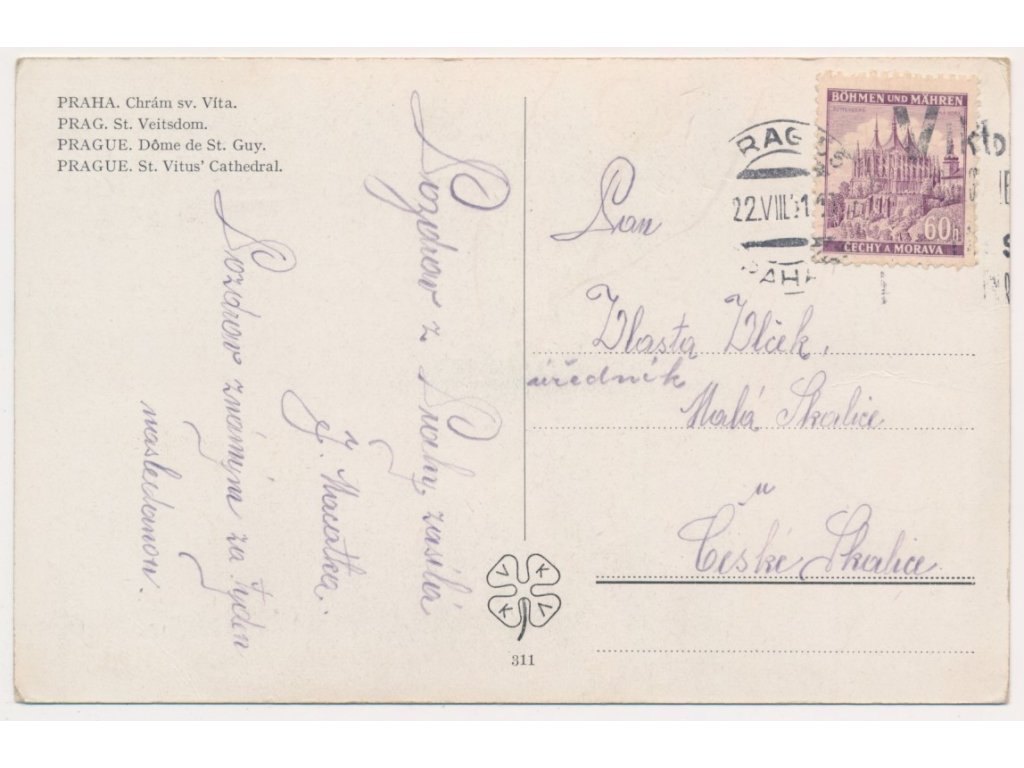 PRAHA. Chrám sv. Víta.
PRAG. St. Veitsdom.
PRAGUE. Dôme de St. Guy.
PRAGUE. St. Vitus' Cathedral.
Pozdrav z Prahy, zasílá
J. Macatka.
Pozdrav známým za týden
nasledanou.
BÖHMEN UND MÄHREN
60h
ČECHY A MORAVA
PRAG
22.VIII.41
PRAHA
Vikto
Pan
Vlasta Vlček,
úředník
Malá Skalice
u
České Skalice.
V K
K V
311